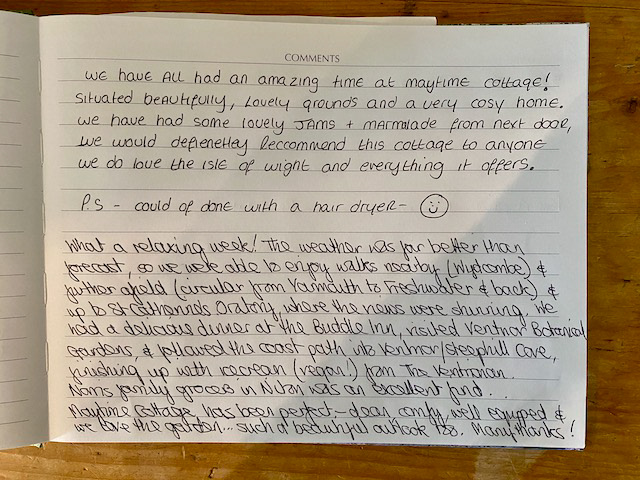 COMMENTS
we have All had an amazing time at maytime cottage!
situated beautifully, Lovely grounds and a very cosy home.
we have had some lovely JAMS + marmalade from next door,
we would defienetley Reccommend this cottage to anyone
we do love the Isle of wight and everything it offers.
P.S - could of done with a hair dryer-
What a relaxing week! The weather was far better than
forecast, so we were able to enjoy walks nearby (Whitcombe) &
further afield (circular from Yarmouth to Freshwater & back), &
up to St Catherine's Oratory, where the views were stunning. We
had a delicious dinner at the Buddle Inn, visited Ventnor Botanical
Gardens, & followed the coast path into Ventnor/Steephill Cove,
finishing up with icecream (vegan!) from The Ventnorian.
Norris family grocers in Niton was an excellent find.
Maytime Cottage has been perfect - clean, comfy, well equipped &
we love the garden... such a beautiful outlook too. Many thanks!